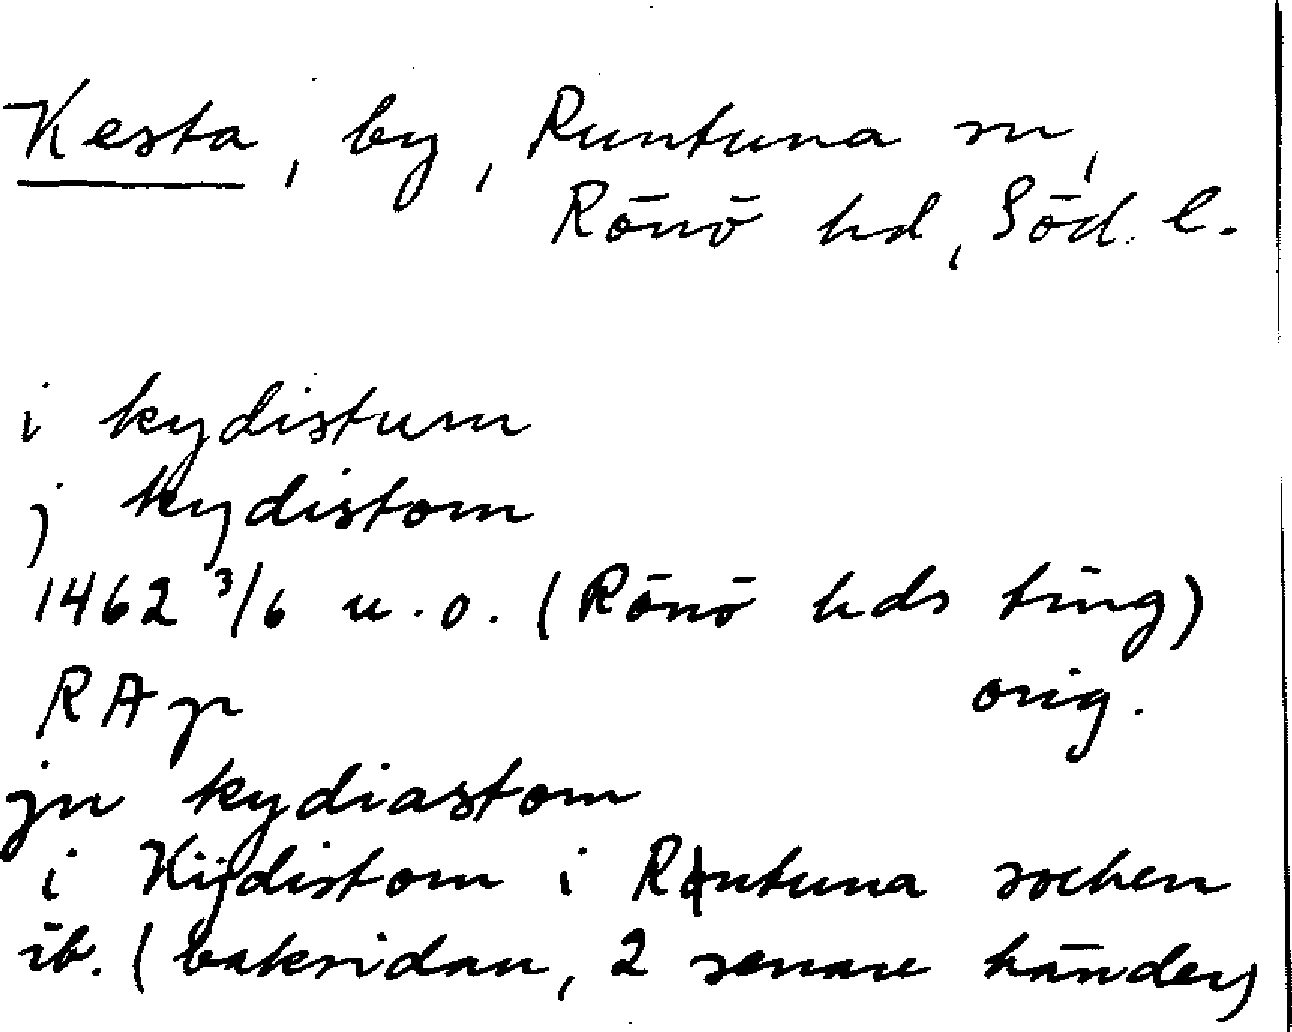 Kesta, by, Runtuna sn,
Rönö hd, Söd. l.
i kydistum
j kydistom
1462 3/6 u.o. (Rönö hds ting)
RAp orig.
jn kydiastom
i Kijdistom i Rontuna sochen
ib. (baksidan, 2 senare händer)